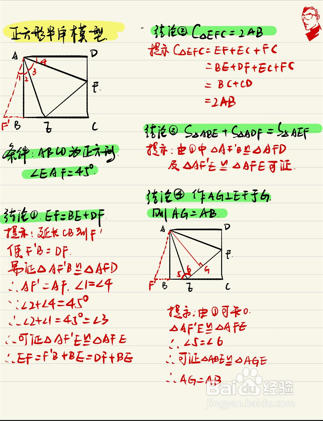 正方形半角模型
A
D
F
F'
B
E
C
条件: ABCD为正方形
∠EAF=45°
结论① EF=BE+DF
提示: 延长CB到F'
使F'B=DF.
易证△AF'B≌△AFD
∴AF'=AF. ∠1=∠4
∵∠2+∠4=45°
∴∠2+∠1=45°=∠3
∴可证△AF'E≌△AFE
∴EF=F'B+BE=DF+BE
结论② C△EFC=2AB
提示 C△EFC=EF+EC+FC
=BE+DF+EC+FC
=BC+CD
=2AB
结论③ S△ABE+S△ADF=S△AEF
提示: 由①中△AF'B≌△AFD
及△AF'E≌△AFE可证.
结论④ 作AG⊥EF于G.
则AG=AB
A
D
F
G
5
6
F'
B
E
C
提示: 由①可知.
△AF'E≌△AFE
∴∠5=∠6
∴可证△ABE≌△AGE
∴AG=AB
Baidu经验